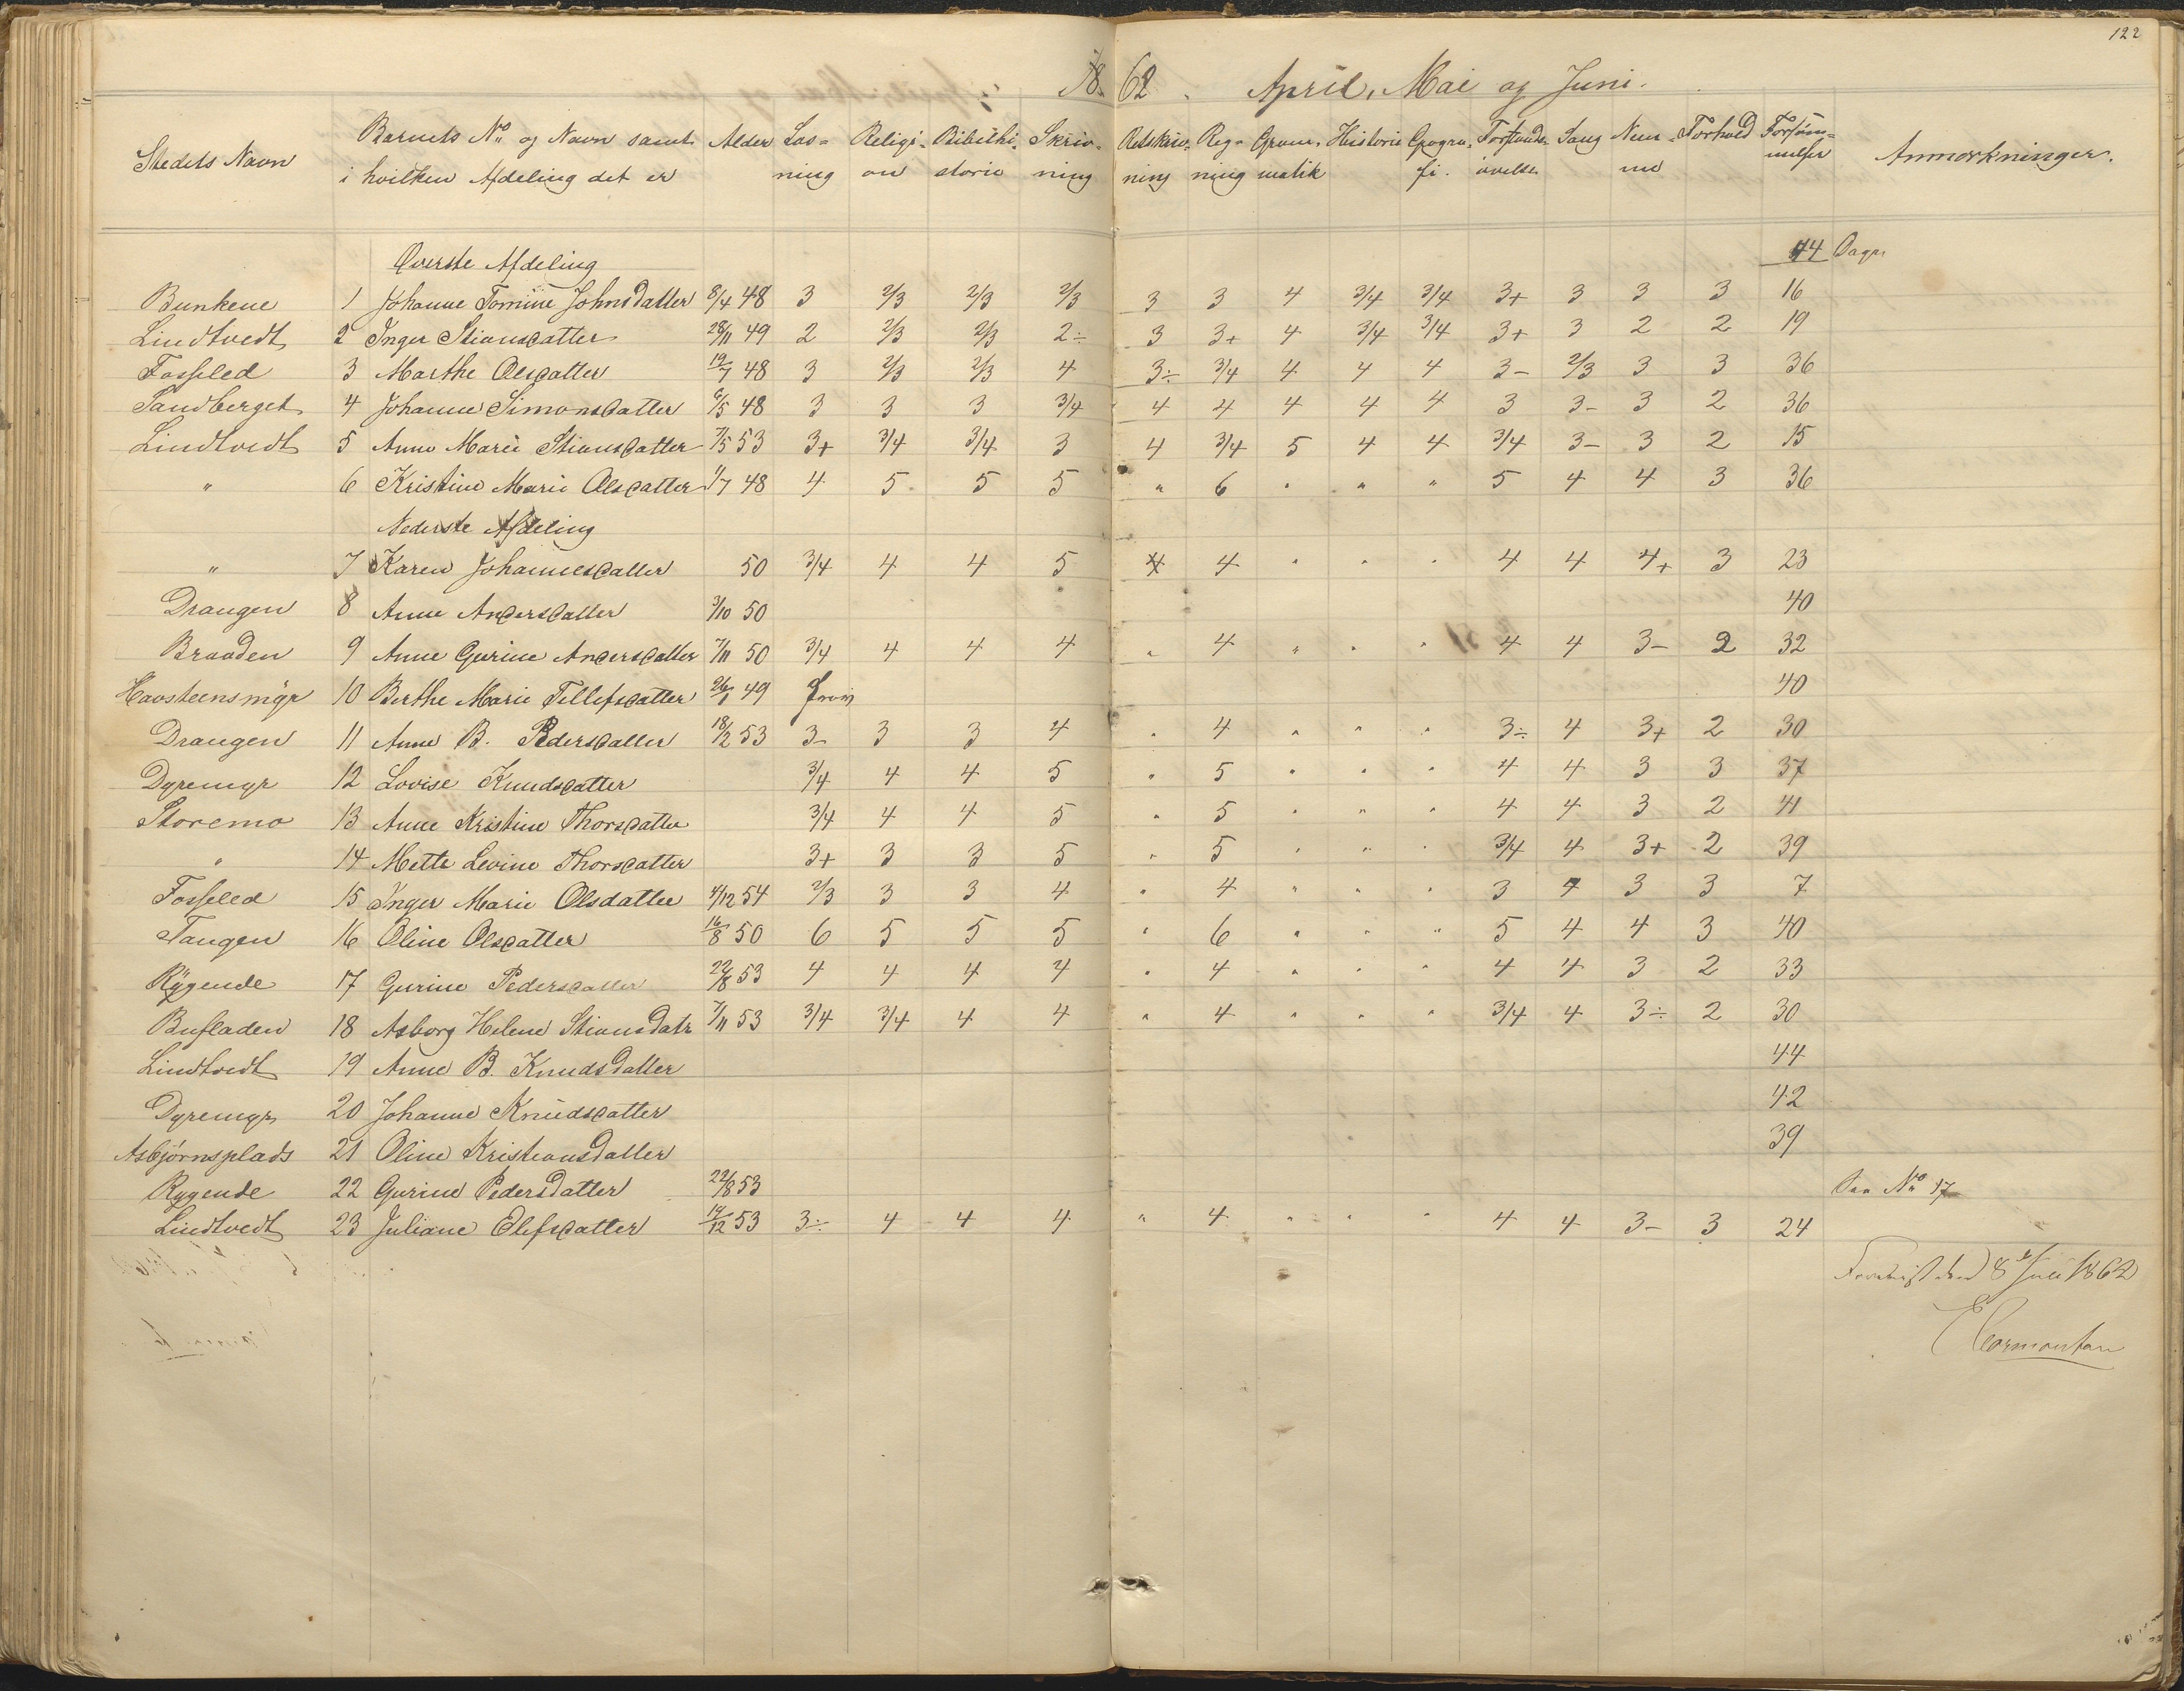 122
1862. April, Mai og Juni.
Stedets Navn | Barnets No og Navn samt i hvilken Afdeling det er | Alder | Læsning | Religion | Bibelhistorie | Skrivning | Retskrivning | Regning | Gramatik | Historie | Geografi | Forstandsøvelse | Sang | Nemme | Forhold | Forsømmelser | Anmærkninger.
Øverste Afdeling 44 Dage
Bunkene 1 Johanne Tomine Johnsdatter 8/4 48 3 2/3 2/3 2/3 3 3 4 3/4 3/4 3+ 3 3 3 16
Lindtvedt 2 Inger Stiansdatter 28/11 49 2 2/3 2/3 2÷ 3 3+ 4 3/4 3/4 3+ 3 2 2 19
Fosseled 3 Marthe Olesdatter 19/7 48 3 2/3 2/3 4 3÷ 3/4 4 4 4 3- 2/3 3 3 36
Sandberget 4 Johanne Simonsdatter 6/5 48 3 3 3 3/4 4 4 4 4 4 3 3- 3 2 36
Lindtvedt 5 Anne Marie Stiansdatter 7/5 53 3+ 3/4 3/4 3 4 3/4 5 4 4 3/4 3- 3 2 15
" 6 Kristine Marie Olsdatter 1/7 48 4 5 5 5 " 6 " " " 5 4 4 3 36
Nederste Afdeling
" 7 Karen Johannesdatter 50 3/4 4 4 5 4 " " " 4 4 4+ 3 23
Drangen 8 Anne Andersdatter 3/10 50 40
Braaden 9 Anne Gurine Andersdatter 7/11 50 3/4 4 4 4 " 4 " " " 4 4 3- 2 32
Havsteensmyr 10 Berthe Marie Tellefsdatter 26/1 49 40
Drangen 11 Anne B. Pedersdatter 18/2 53 3- 3 3 4 " 4 " " " 3÷ 4 3+ 2 30
Dyremyr 12 Lovise Knudsdatter 3/4 4 4 5 " 5 " " " 4 4 3 3 37
Storemo 13 Anne Kristine Thorsdatter 3/4 4 4 5 " 5 " " " 4 4 3 2 41
" 14 Mette Levine Thorsdatter 3+ 3 3 5 " 5 " " " 3/4 4 3+ 2 39
Fosseled 15 Inger Marie Olsdatter 4/12 54 2/3 3 3 4 " 4 " " " 3 4 3 3 7
Tangen 16 Oline Olsdatter 16/8 50 6 5 5 5 " 6 " " " 5 4 4 3 40
Rygende 17 Gurine Pedersdatter 22/8 53 4 4 4 4 " 4 " " " 4 4 3 2 33
Bufladen 18 Asborg Helene Stiansdatr 7/11 53 3/4 3/4 4 4 " 4 " " " 3/4 4 3÷ 2 30
Lindtvedt 19 Anne B. Knudsdatter 44
Dyremyr 20 Johanne Knudsdatter 42
Asbjørnsplads 21 Oline Kristiansdatter 39
Rygende 22 Gurine Pedersdatter 22/8 53 See No 17
Lindtvedt 23 Juliane Olefsdatter 19/12 53 3÷ 4 4 4 " 4 " " " 4 4 3- 3 24
Forevist den 8de Juli 1862